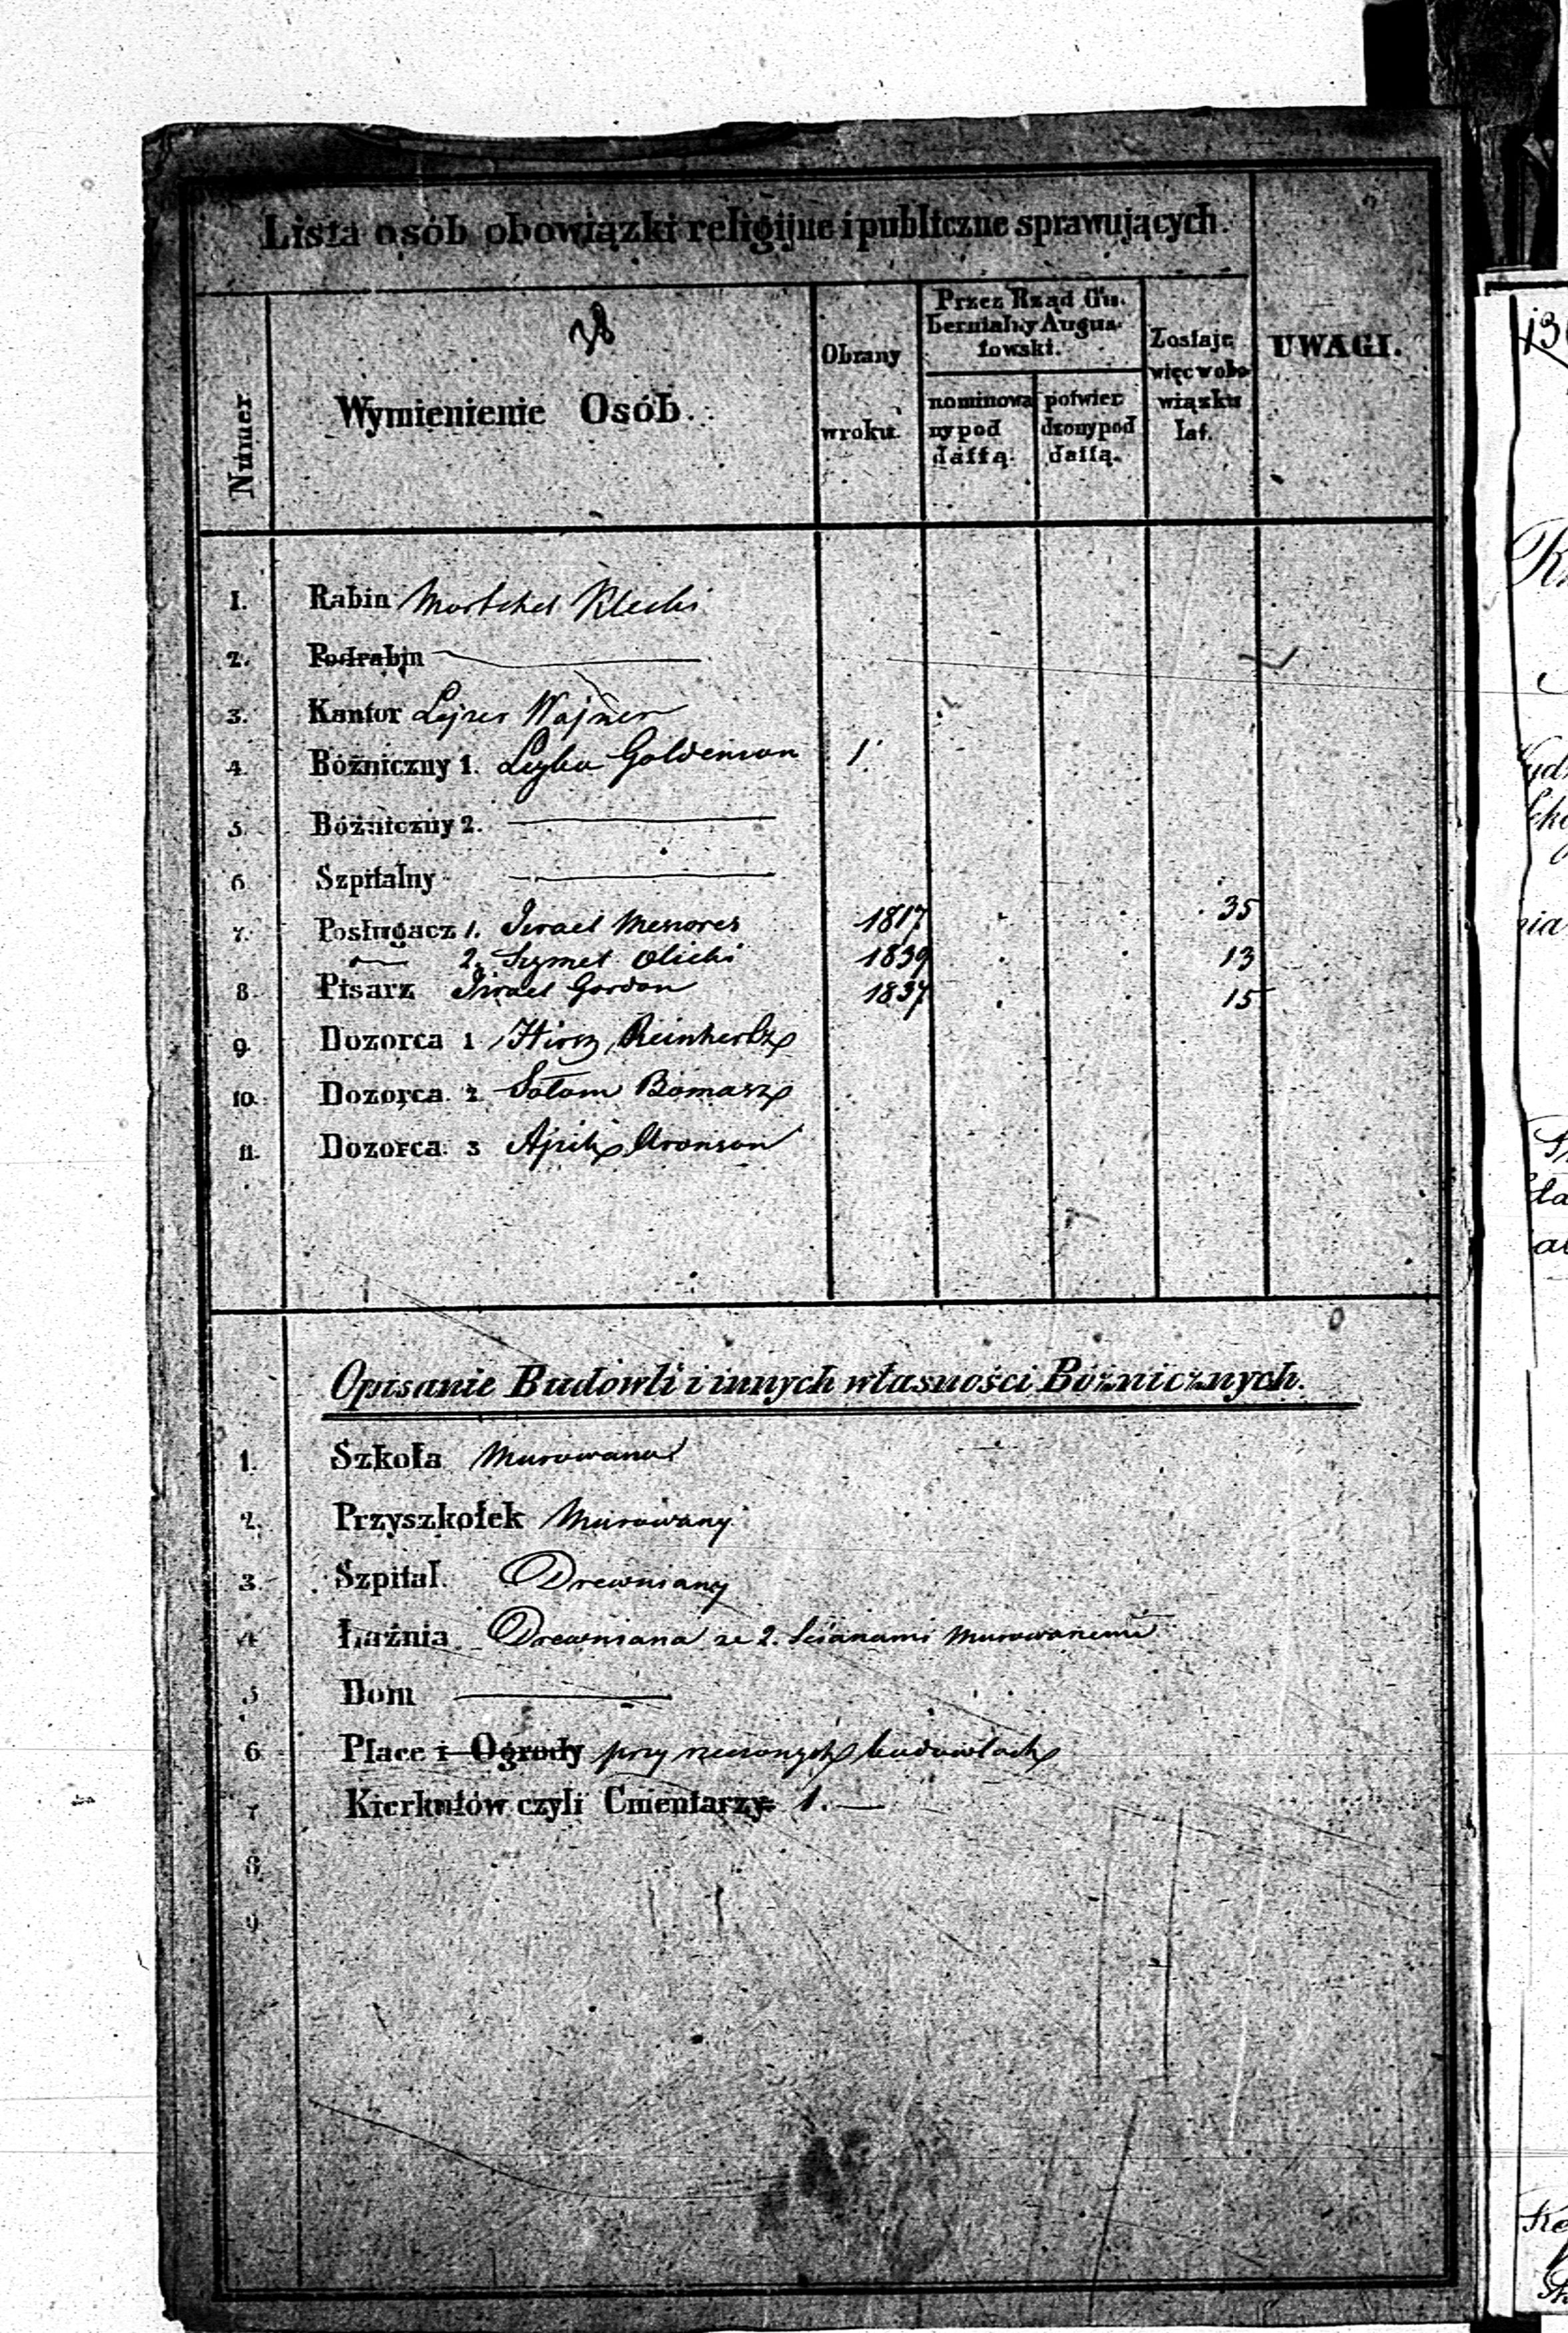 Lista osób obowiązki religijne i publiczne sprawujących.
Numer
Wymienienie Osób.
Obrany
w roku.
Przez Rząd Gu-
bernialny Augus-
towski.
nominowa
ny pod
dattą.
potwier
dzony pod
dattą.
Zostaje
więc w obo-
wiązku
lat.
UWAGI.
1. Rabin Mortchel Klecki
2. Podrabin —
3. Kantor Lejzer Wajner
4. Bóżniczny 1. Leyba Goldenson 1.
5. Bóżniczny 2. —
6 Szpitalny —
7. Posługacz 1. Israel Menores 1817 35
2. Szymel Olicki 1839 13
8 Pisarz Israel Gordon 1837 15
9. Dozorca 1 Hirsz Reinhertz
10. Dozorca 2. Sołom Bomasz
11. Dozorca 3 Ajzik Aronson
Opisanie Budowli i innych własności Bóżnicznych.
1. Szkoła Murowana
2. Przyszkołek Murowany
3. Szpital. Drewniany
4. Łaźnia Drewniana ze 2. Scianami Murowanemi
5 Dom —
6 Place i Ogrody przy rzeczonych budowlach
7 Kierkutów czyli Cmentarzy 1. —
8
9